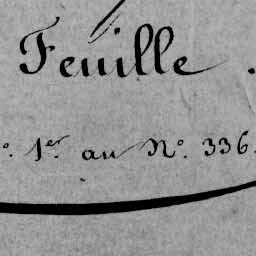 Feuille.
o. 1er. au No. 336.